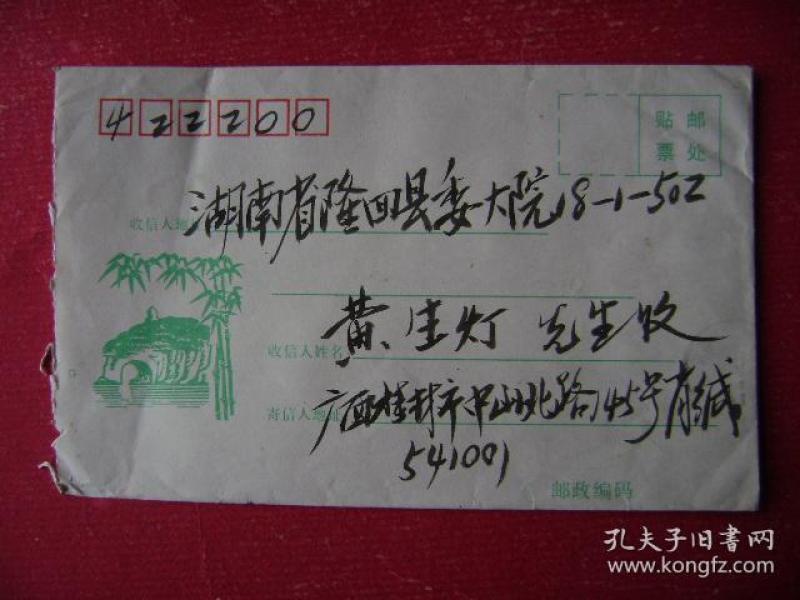 422200
贴邮
票处
湖南省隆回县委大院18-1-502
收信人地址
黄生灯 先生收
收信人姓名
广西桂林市中山北路145号肖缄
寄信人地址
541001
邮政编码
孔夫子旧书网
www.kongfz.com